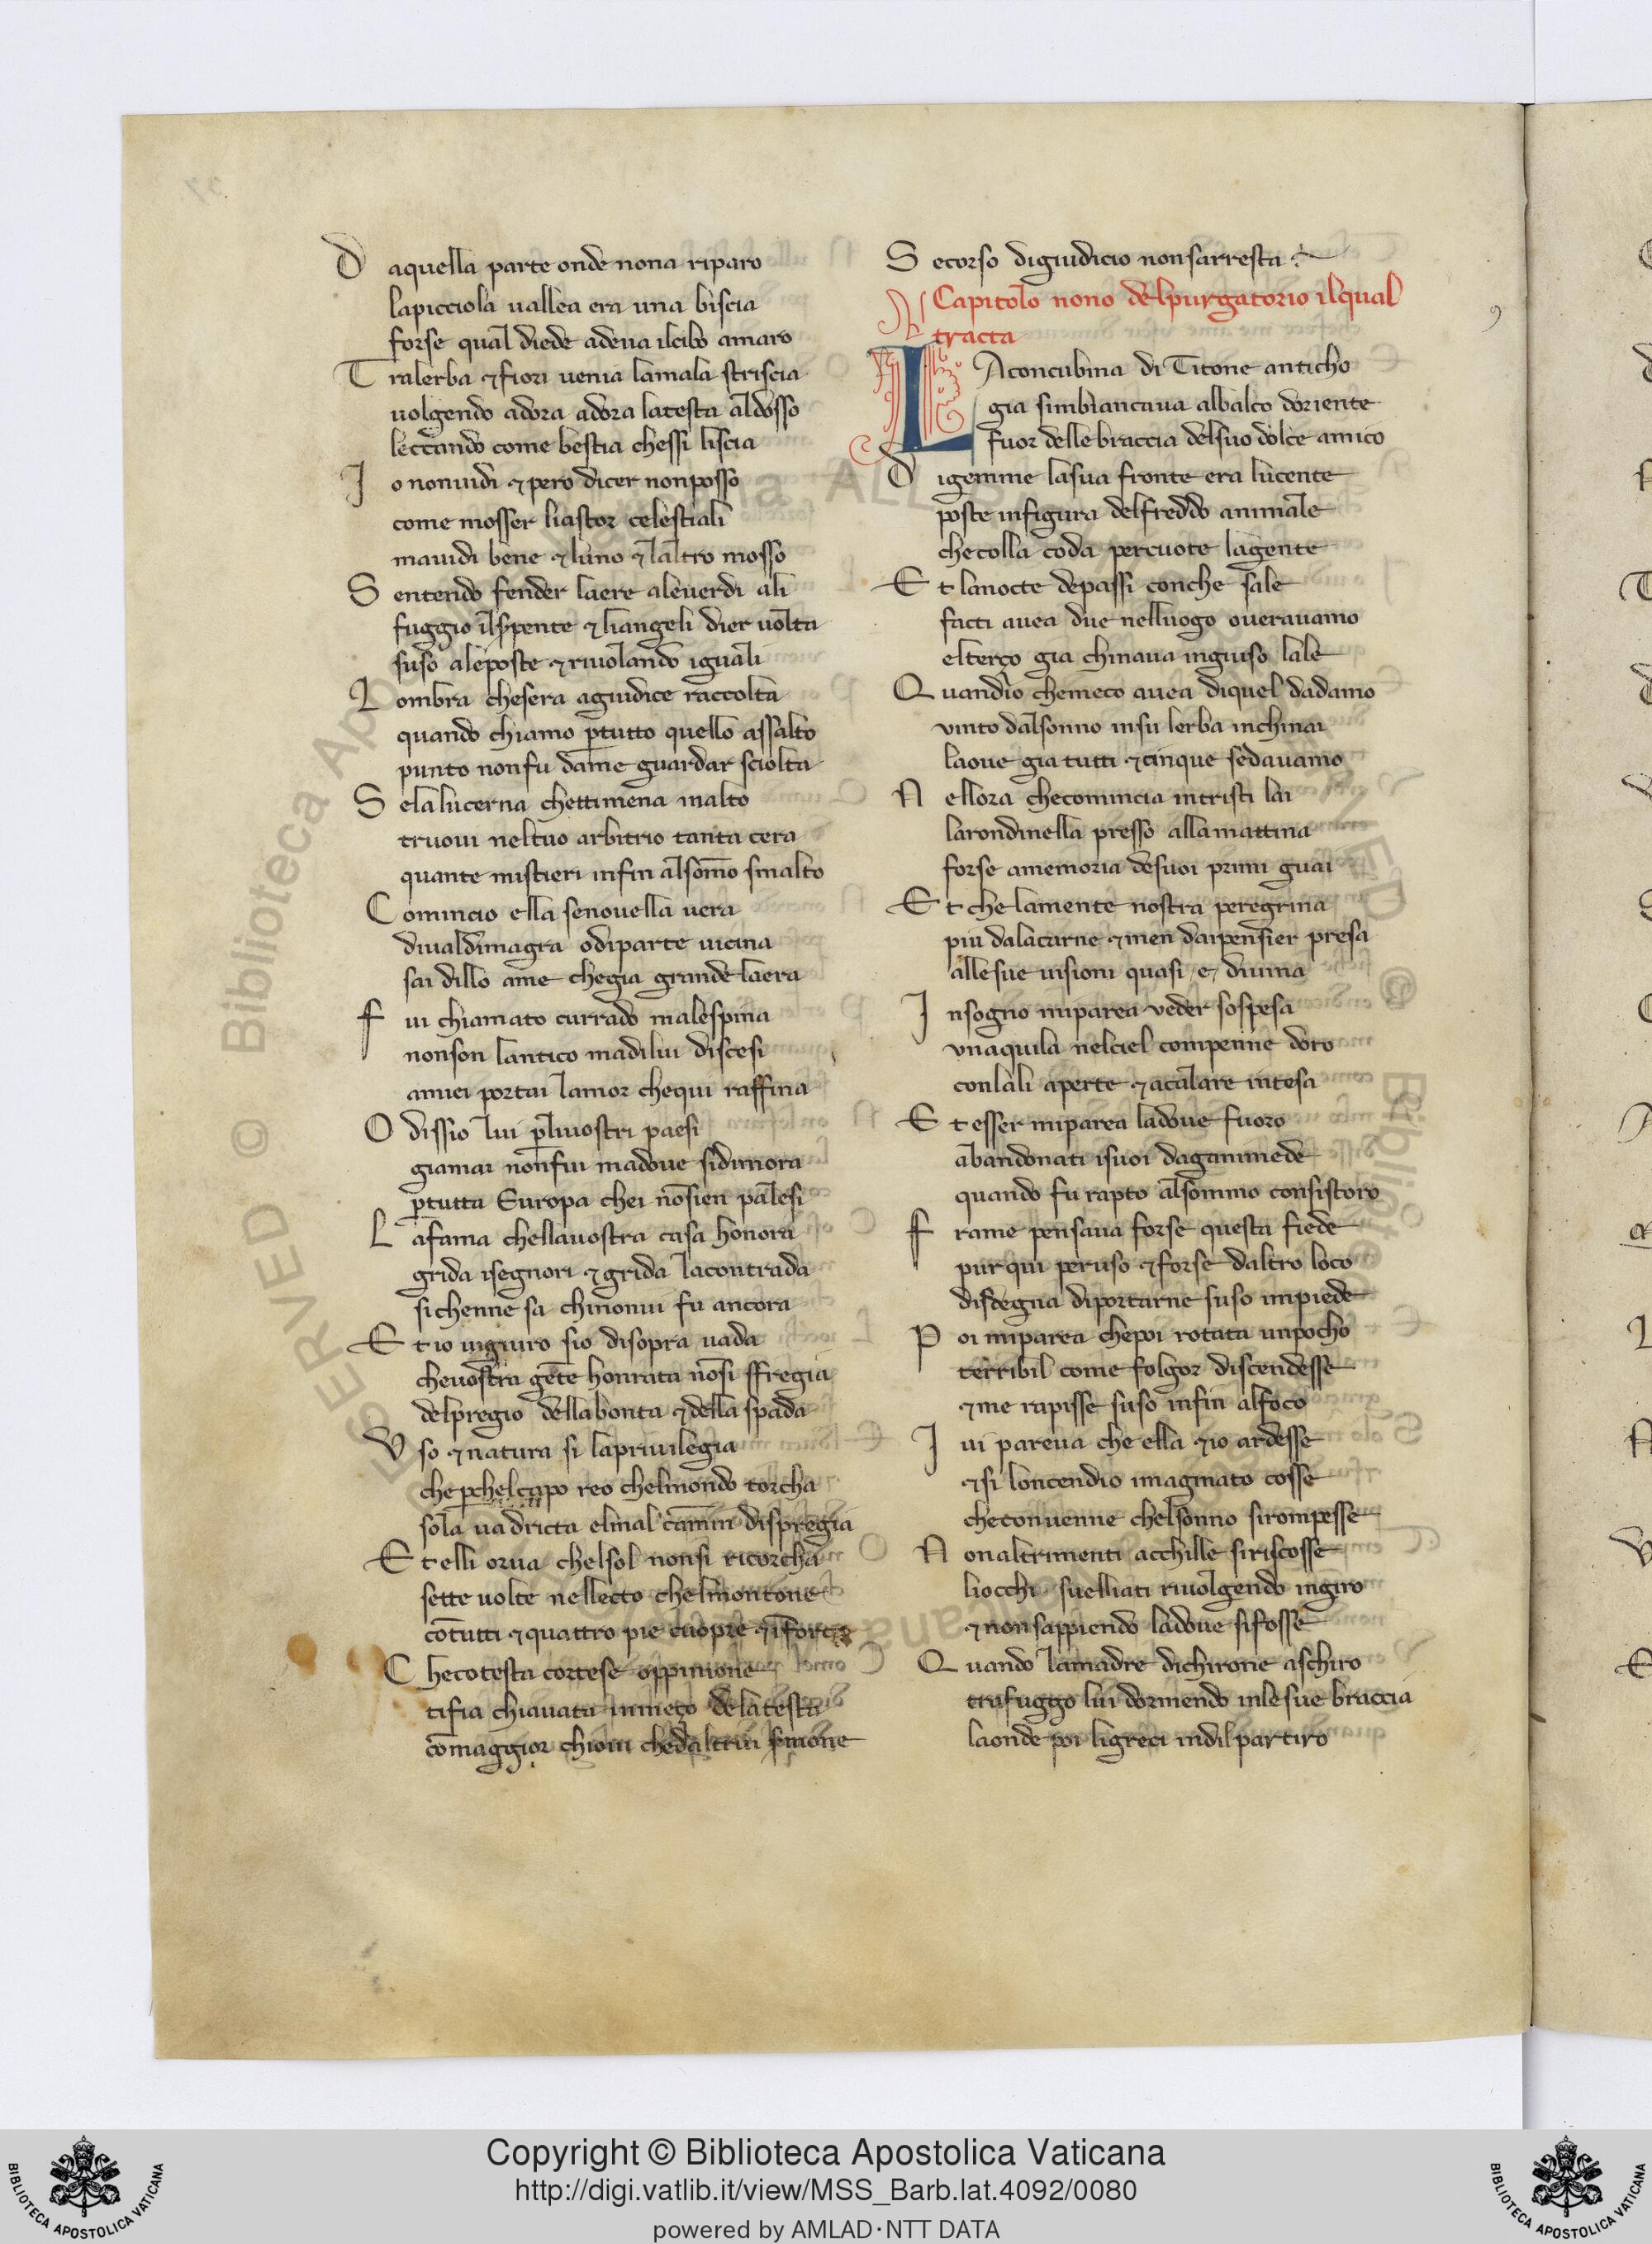 D aquella parte onde nona riparo
lapicciola uallea era una biscia
forse qual diede adeua ilcibo amaro
T ralerba ⁊ fiori uenia lamala striscia
uolgendo adora adora latesta aldosso
leccando come bestia chessi liscia
J o nonuidi ⁊ pero dicer nonposso
come mosser liastor celestiali
mauidi bene ⁊ luno ⁊ laltro mosso
S entendo fender laere aleuerdi ali
fuggio ilspente ⁊ liangeli dier uolta
suso aleposte ⁊ riuolando iguali
L ombra chesera aguidice raccolta
quando chiamo ꝑtutto quello assalto
punto nonfu dame guardar sciolta
S elalucerna chettimena inalto
truoui neltuo arbitrio tanta cera
quante mistieri infin alsom̄o smalto
C omincio ella senouella uera
diualdimagra odiparte uicina
sai dillo ame chegia grande laera
F ui chiamato currado malespina
nonson lantico madilui discesi
amiei portai lamor chequi raffina
O dissio lui ꝑliuostri paesi
giamai nonfui madoue sidimora
ꝑtutta Europa chei nōsien palesi
L afama chellauostra casa honora
grida isegnori ⁊ grida lacontrada
sichenne sa chinonui fu ancora
E t io uigiuro sio disopra uada
cheuostra gēte honrata nōsi sfregia
delpregio dellabonta ⁊ della spada
V so ⁊ natura si lapriuilegia
cheꝑchelcapo reo chelmondo torcha
sola ua dricta elmal camin dispregia
E t elli orua chelsol nonsi ricorcha
sette uolte nellecto chelmontone
cōtutti ⁊ quattro pie cuopre ⁊ īforca
C hecotesta cortese oppinione
tifia chiauata inmeço delatesta
cōmaggior chioui chedaltrui smone
S ecorso digiudicio nonsarresta
Capitolo nono delpurgatorio ilqual
tracta
L Aconcubina di Titone anticho
gia simbiancaua albalco doriente
fuor dellebraccia delsuo dolce amico
D igemme lasua fronte era lucente
poste infigura delfreddo animale
checolla coda percuote lagente
E t lanocte depassi conche sale
facti auea due nelluogo oueravamo
elterço gia chinaua ingiuso lale
Q uandio chemeco auea diquel dadamo
vinto dalsonno insu lerba inchinai
laoue gia tutti ⁊ cinque sedauamo
N ellora checomincia intristi lai
larondinella presso allamattina
forse amemoria desuoi primi guai
E t che lamente nostra peregrina
piu dalacarne ⁊ men dapensier presa
allesue uisioni quasi e diuina
J nsogno miparea ueder sospesa
vnaquila nelciel compenne doro
conlali aperte ⁊ acalare intesa
E t esser miparea ladoue fuoro
abandonati isuoi daganimede
quando fu rapto alsommo consistoro
F rame pensaua forse questa fiede
pur qui peruso ⁊ forse daltro loco
disdegna diportarne suso impiede
P oi miparea chepoi rotata unpocho
terribil come folgor discendesse
⁊ me rapisse suso infin alfoco
J ui pareua che ella ⁊ io ardesse
⁊ si loncendio imaginato cosse
checonuenne chelsonno sirompesse
N onaltrimenti acchille siriscosse
liocchi suelliati riuolgendo ingiro
⁊ nonsappiendo ladoue sifosse
Q uando lamadre dichirone aschiro
trafuggo lui dormendo inlesue braccia
laonde poi ligreci indilpartiro
Copyright © Biblioteca Apostolica Vaticana
http://digi.vatlib.it/view/MSS_Barb.lat.4092/0080
powered by AMLAD·NTT DATA